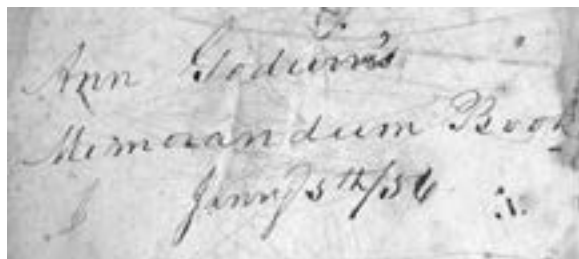 Ann Godwin's
Memorandum Book
Jany 5th/56